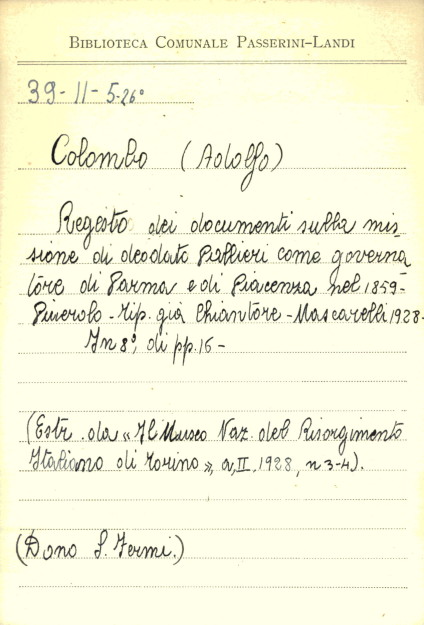 BIBLIOTECA COMUNALE PASSERINI-LANDI
39-11-5-26°
Colombo (Adolfo)
Regesto dei documenti sulla mis-
sione di deodato Pallieri come governa
tore di Parma e di Piacenza nel 1859-
Pinerolo - Tip. già Chiantore - Mascarelli 1928-
In 8°, di pp. 16 -
(Estr. da « Il Museo Naz. del Risorgimento
Italiano di Torino », a, II, 1928, n 3-4).
(Dono S. Fermi.)